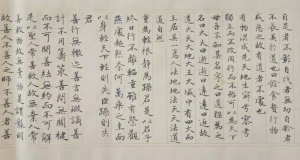 自是者不彰自伐者無功自矜者
不長其於道也曰餘食贅行物
或惡之故有道者不處也
有物混成先天地生寂兮寥兮
獨立而不改周行而不殆可以為天下
母吾不知其名字之曰道強為之
名曰大大曰逝逝曰遠遠曰返故
道大天大地大王亦大域中有四大而
王居其一焉人法地地法天天法道
道法自然
重為輕根靜為躁君是以君子
終日行不離輜重雖有榮觀
燕處超然奈何萬乘之主而
以身輕天下輕則失臣躁則失
君
善行無轍迹善言無瑕謫善
計不用籌策善閉無關楗
是以聖人常善救人故無棄人常
善救物故無棄物是謂襲明
故善人不善人之師不善人善